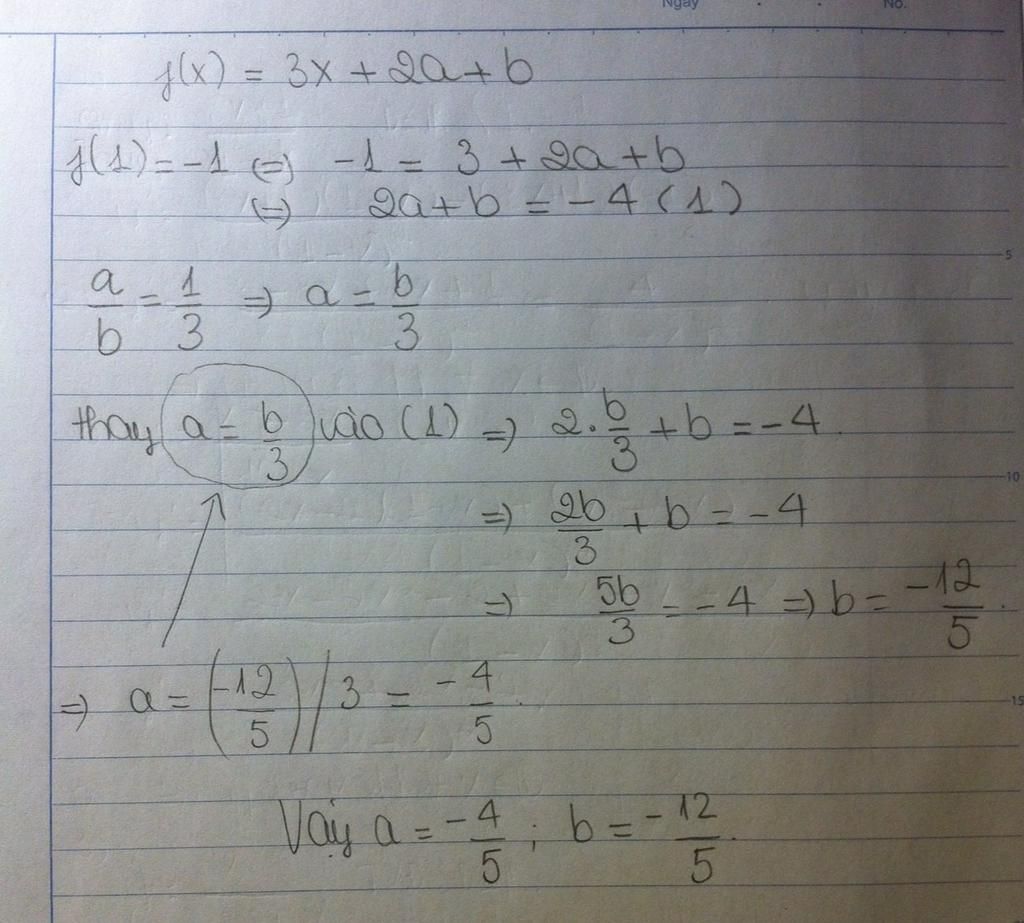 Ngày No.
f(x) = 3x + 2a + b
f(1) = -1 (=) -1 = 3 + 2a + b
(=) 2a + b = -4 (1)
5
a/b = 1/3 => a = b/3
thay a = b/3 vào (1) => 2.b/3 + b = -4.
10
=> 2b/3 + b = -4
=> 5b/3 = -4 => b = -12/5.
=> a = (-12/5) / 3 = -4/5.
15
Vậy a = -4/5 ; b = -12/5.